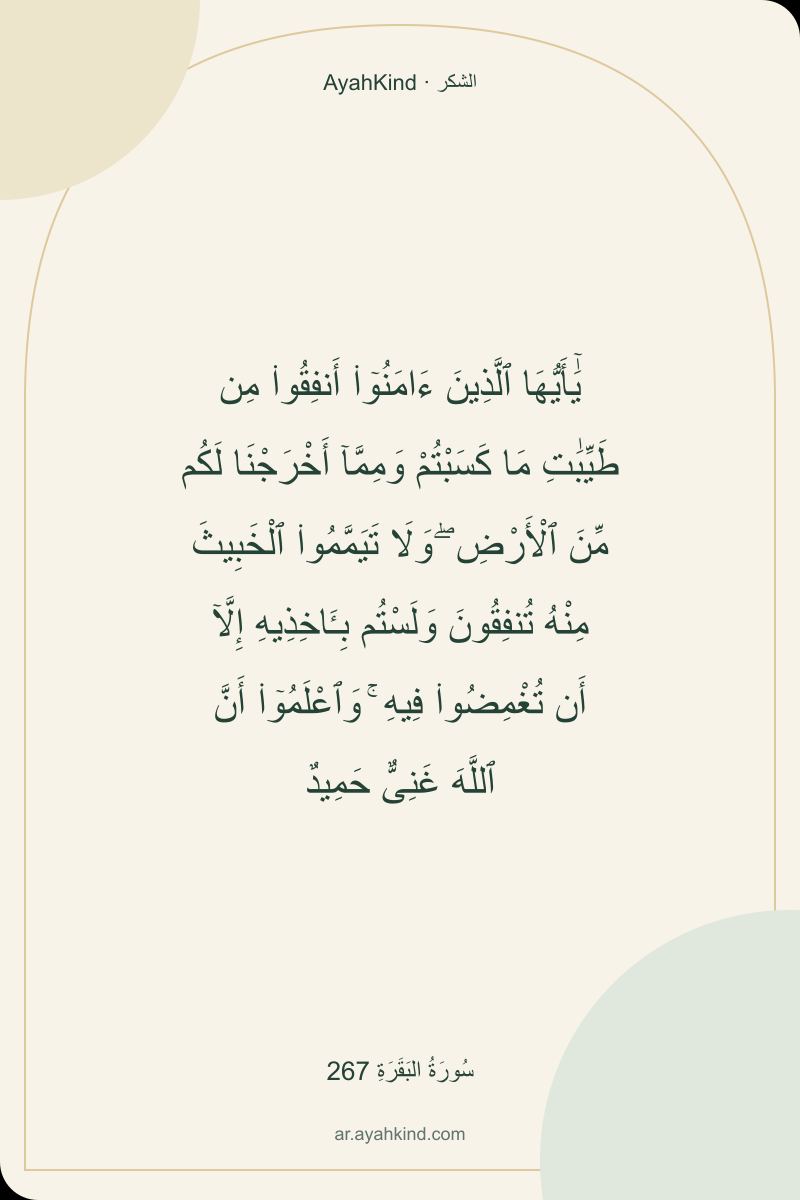 AyahKind · الشكر
يَٰٓأَيُّهَا ٱلَّذِينَ ءَامَنُوٓا۟ أَنفِقُوا۟ مِن
طَيِّبَٰتِ مَا كَسَبْتُمْ وَمِمَّآ أَخْرَجْنَا لَكُم
مِّنَ ٱلْأَرْضِ ۖ وَلَا تَيَمَّمُوا۟ ٱلْخَبِيثَ
مِنْهُ تُنفِقُونَ وَلَسْتُم بِـَٔاخِذِيهِ إِلَّآ
أَن تُغْمِضُوا۟ فِيهِ ۚ وَٱعْلَمُوٓا۟ أَنَّ
ٱللَّهَ غَنِىٌّ حَمِيدٌ
سُورَةُ البَقَرَةِ 267
ar.ayahkind.com